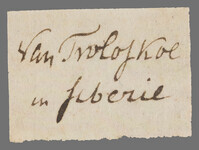 Van Troloskoe
in siberie